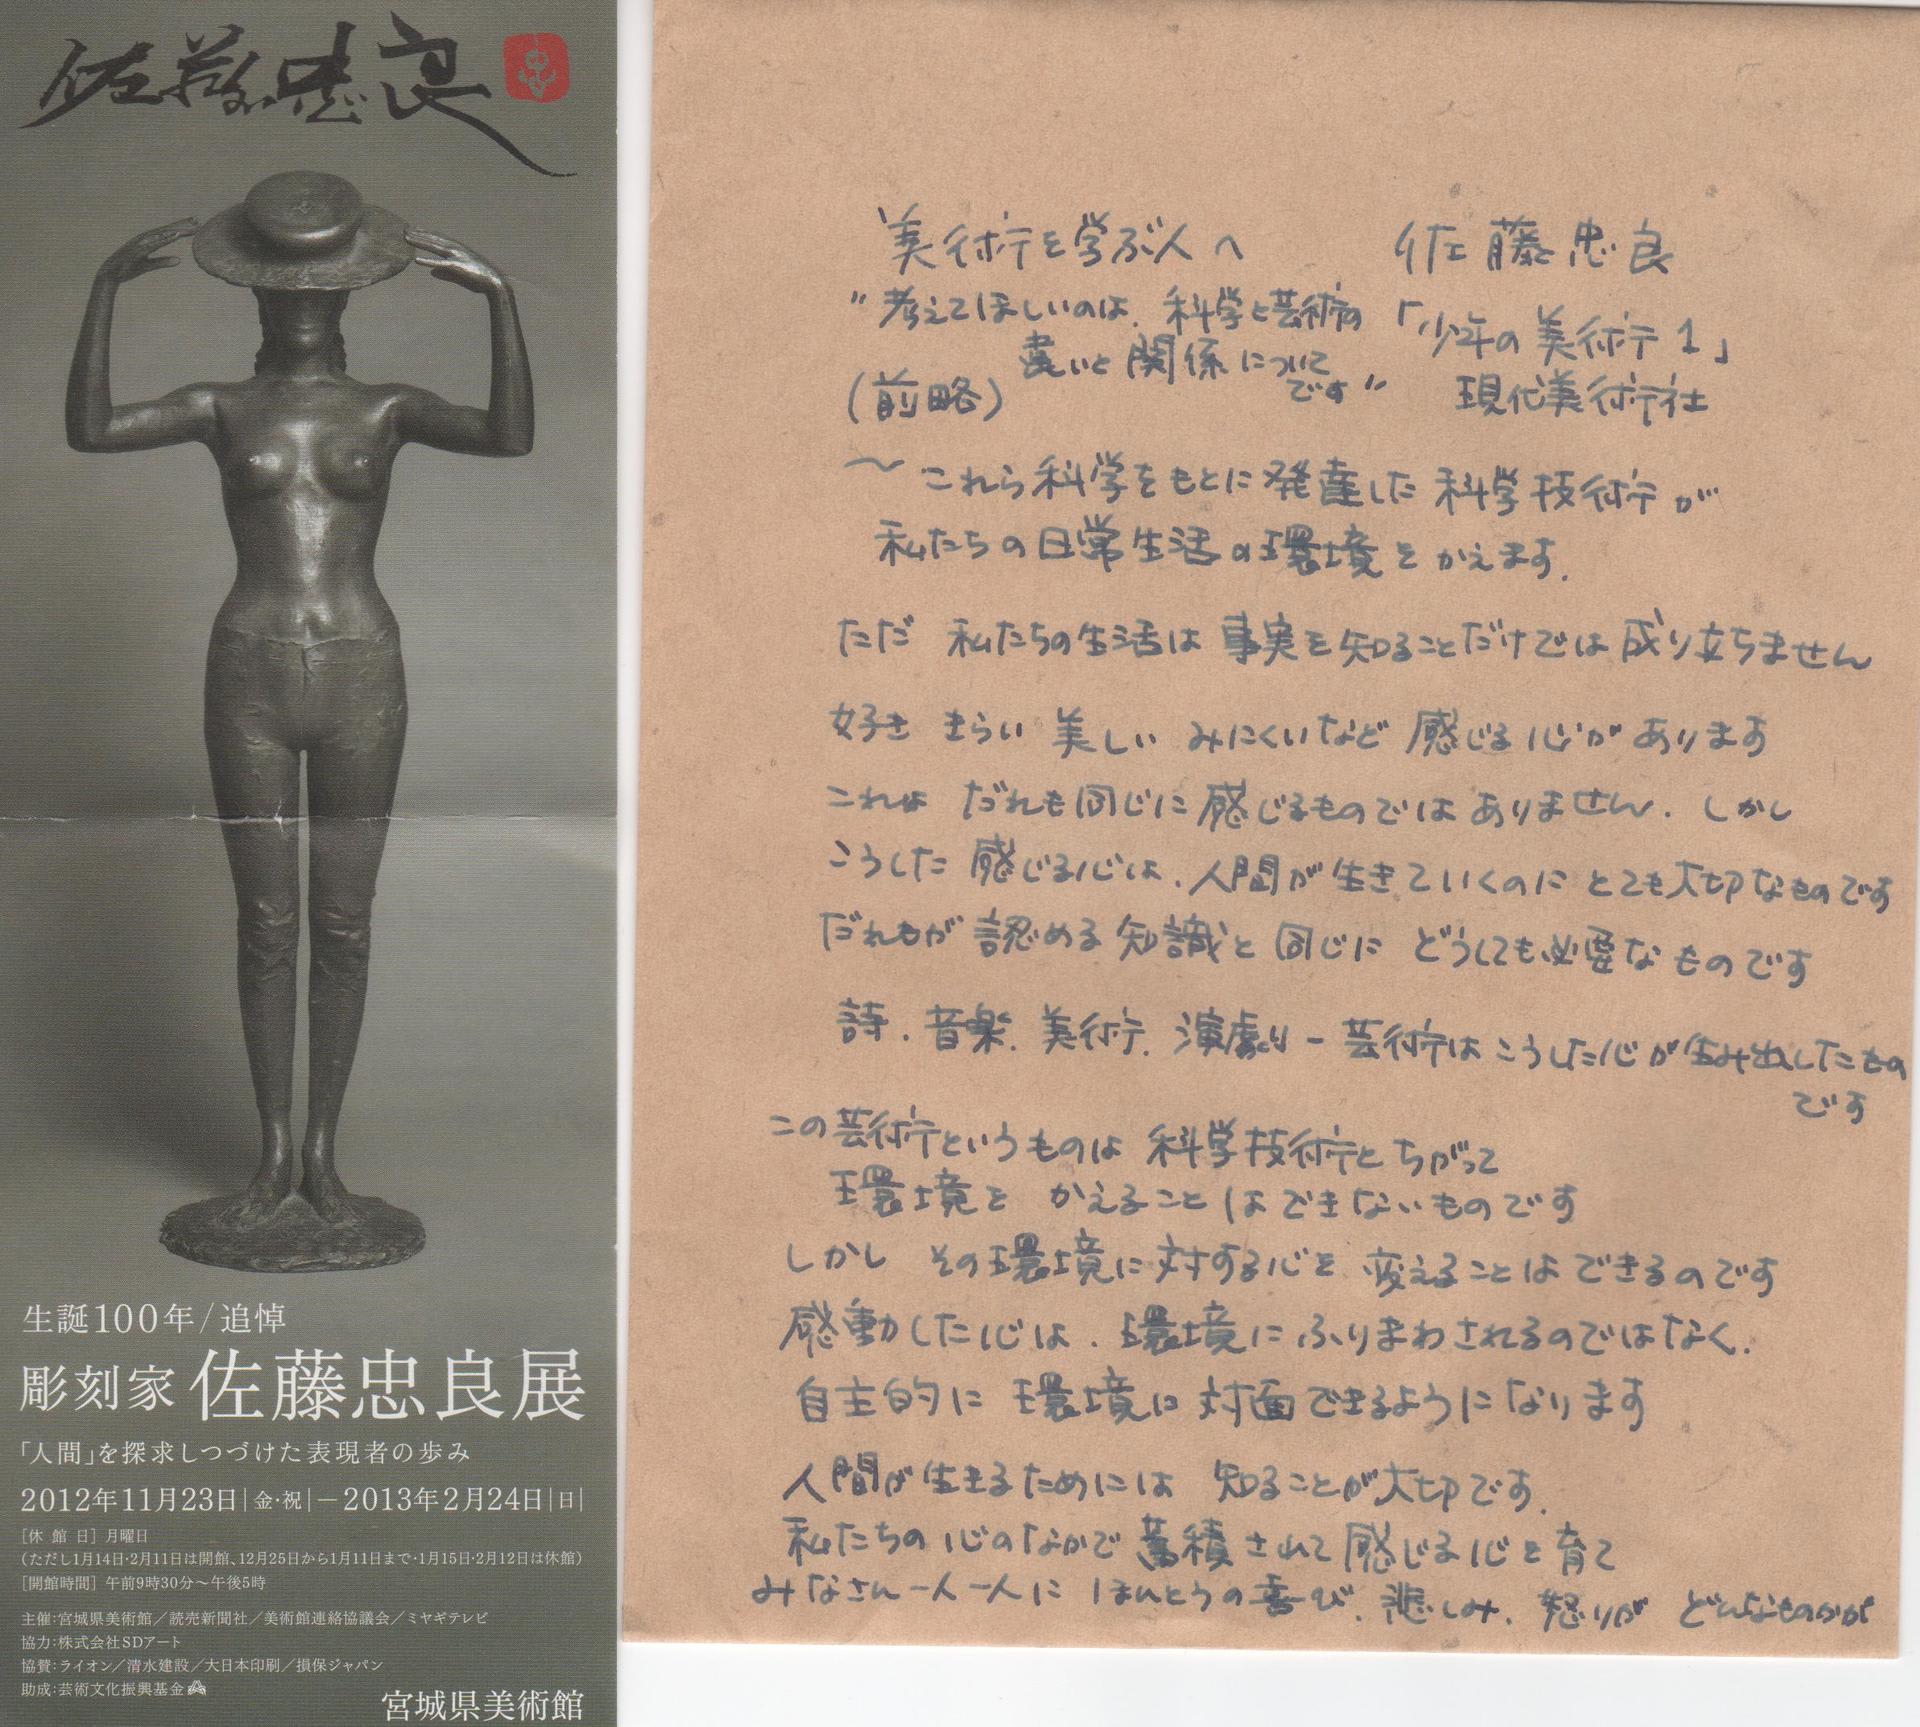 佐藤忠良
生誕100年/追悼
彫刻家 佐藤忠良展
「人間」を探求しつづけた表現者の歩み
2012年11月23日|金・祝|―2013年2月24日|日|
[休館日] 月曜日
(ただし1月14日・2月11日は開館、12月25日から1月11日まで・1月15日・2月12日は休館)
[開館時間] 午前9時30分〜午後5時
主催:宮城県美術館/読売新聞社/美術館連絡協議会/ミヤギテレビ
協力:株式会社SDアート
協賛:ライオン/清水建設/大日本印刷/損保ジャパン
助成:芸術文化振興基金
宮城県美術館
美術を学ぶ人へ 佐藤忠良
"考えてほしいのは、科学と芸術の
違いと関係について
です"
「少年の美術1」
現代美術社
(前略)
〜これら科学をもとに発達した科学技術が
私たちの日常生活の環境をかえます.
ただ 私たちの生活は 事実を知ることだけでは成り立ちません
好き きらい 美しい みにくいなど 感じる心があります
これは だれも同じに感じるものではありません. しかし
こうした感じる心は、人間が生きていくのにとても大切なものです
だれもが認める知識と同じに どうしても必要なものです
詩、音楽、美術、演劇-芸術はこうした心が生み出したもの
です
この芸術というものは 科学技術とちがって
環境を かえることはできないものです
しかし その環境に対する心を 変えることはできるのです
感動した心は、環境にふりまわされるのではなく、
自主的に 環境に対面できるようになります
人間が生きるためには 知ることが大切です.
私たちの心のなかで蓄積されて感じる心を育て
みなさん一人一人に ほんとうの喜び、悲しみ、怒りが どんなものかが